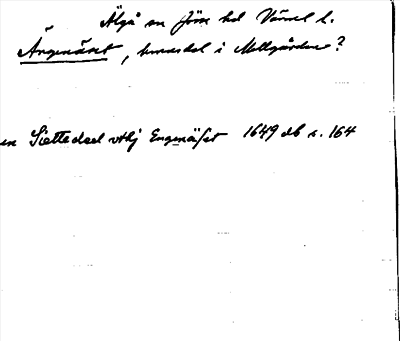 Älgå sn Jösse hd Värml l.
Ängenäset, hemmadel i Mellgården?
en Siettedeel vthj Engenäset 1649 db s. 164